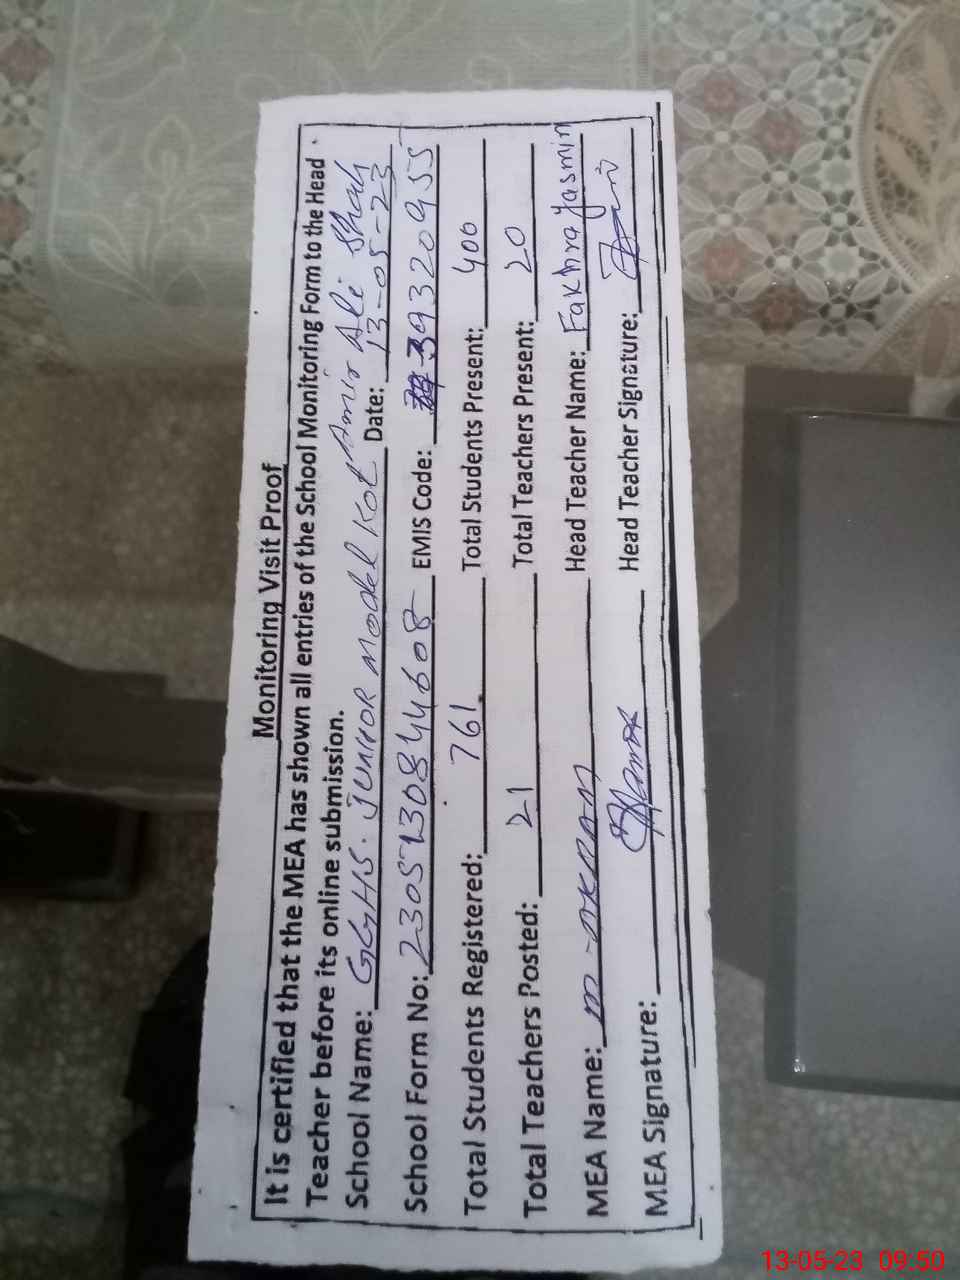 Monitoring Visit Proof
It is certified that the MEA has shown all entries of the School Monitoring Form to the Head
Teacher before its online submission.
School Name: GGHS. Junior Model Kot Amir Ali Shah Date: 13-05-23
School Form No: 2305130844608 EMIS Code: 39320955
Total Students Registered: 761 Total Students Present: 400
Total Teachers Posted: 21 Total Teachers Present: 20
MEA Name: M-AKRAM Head Teacher Name: Fakhra Yasmin
MEA Signature: Head Teacher Signature:
13-05-23 09:50